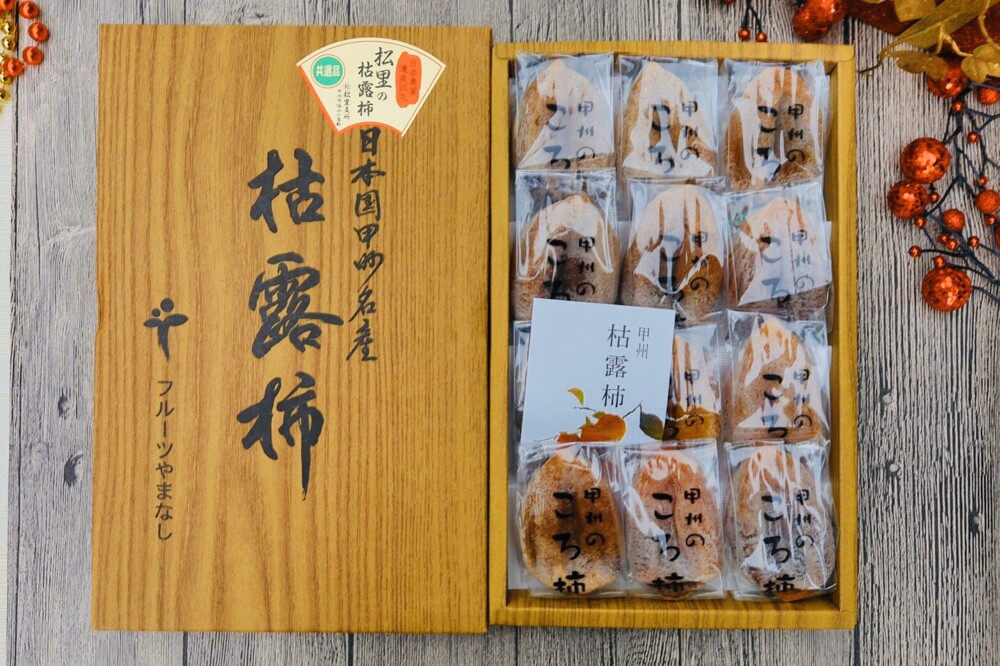 松里の
枯露柿
共選品
松里支所
日本国甲州名産
枯露柿
フルーツやまなし
甲州の
ころ
甲州の
ころ
甲州の
ころ
甲州の
ころ
甲州の
ころ
甲州の
ころ
甲州
枯露柿
甲州の
ころ
甲州の
ころ柿
甲州の
ころ柿
甲州の
ころ柿